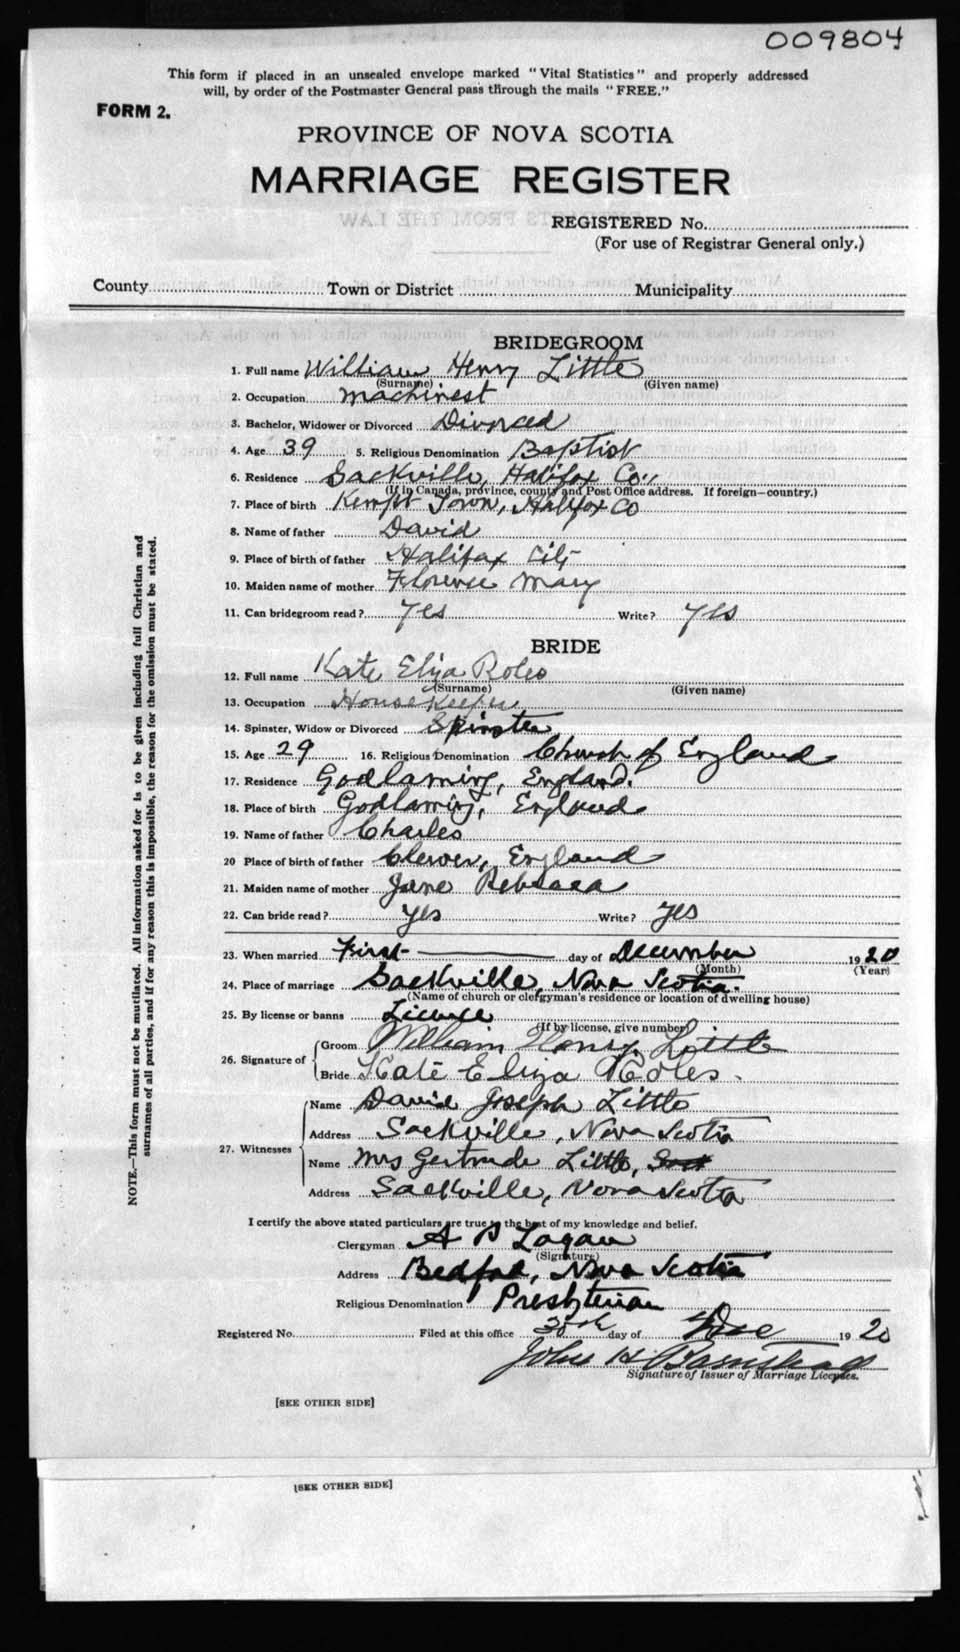 009804
This form if placed in an unsealed envelope marked "Vital Statistics" and properly addressed
will, by order of the Postmaster General pass through the mails "FREE."
FORM 2.
PROVINCE OF NOVA SCOTIA
MARRIAGE REGISTER
REGISTERED No.
(For use of Registrar General only.)
County Town or District Municipality
BRIDEGROOM
1. Full name William Henry Little
(Surname) (Given name)
2. Occupation Machinest
3. Bachelor, Widower or Divorced Divorced
4. Age 39 5. Religious Denomination Baptist
6. Residence Sackville, Halifax Co,,
(If in Canada, province, county and Post Office address. If foreign—country.)
7. Place of birth Kempt Town, Halifax Co
8. Name of father David
9. Place of birth of father Halifax City
10. Maiden name of mother Florence Mary
11. Can bridegroom read? Yes Write? Yes
BRIDE
12. Full name Kate Eliza Roles
(Surname) (Given name)
13. Occupation House Keeper
14. Spinster, Widow or Divorced Spinster
15. Age 29 16. Religious Denomination Church of England
17. Residence Godlaming, England.
18. Place of birth Godlaming, England
19. Name of father Charles
20 Place of birth of father Clewer, England
21. Maiden name of mother Jane Rebecca
22. Can bride read? Yes Write? Yes
23. When married First day of December 1920
(Month) (Year)
24. Place of marriage Sackville, Nova Scotia.
(Name of church or clergyman's residence or location of dwelling house)
25. By license or banns License
(If by license, give number)
26. Signature of
Groom William Henry Little
Bride Kate Eliza Roles.
27. Witnesses
Name David Joseph Little
Address Sackville, Nova Scotia
Name Mrs Gertrude Little,
Address Sackville, Nova Scotia
I certify the above stated particulars are true to the best of my knowledge and belief.
Clergyman A Logan
(Signature)
Address Bedford, Nova Scotia
Religious Denomination Presbyterian
Registered No. Filed at this office 30th day of Dec 1920
John H Barnstead
Signature of Issuer of Marriage Licenses.
[SEE OTHER SIDE]
[SEE OTHER SIDE]
NOTE.—This form must not be mutilated. All information asked for is to be given including full Christian and
surnames of all parties, and if for any reason this is impossible, the reason for the omission must be stated.